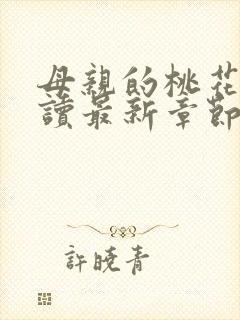 母親的桃花
讀最新章節
許曉青